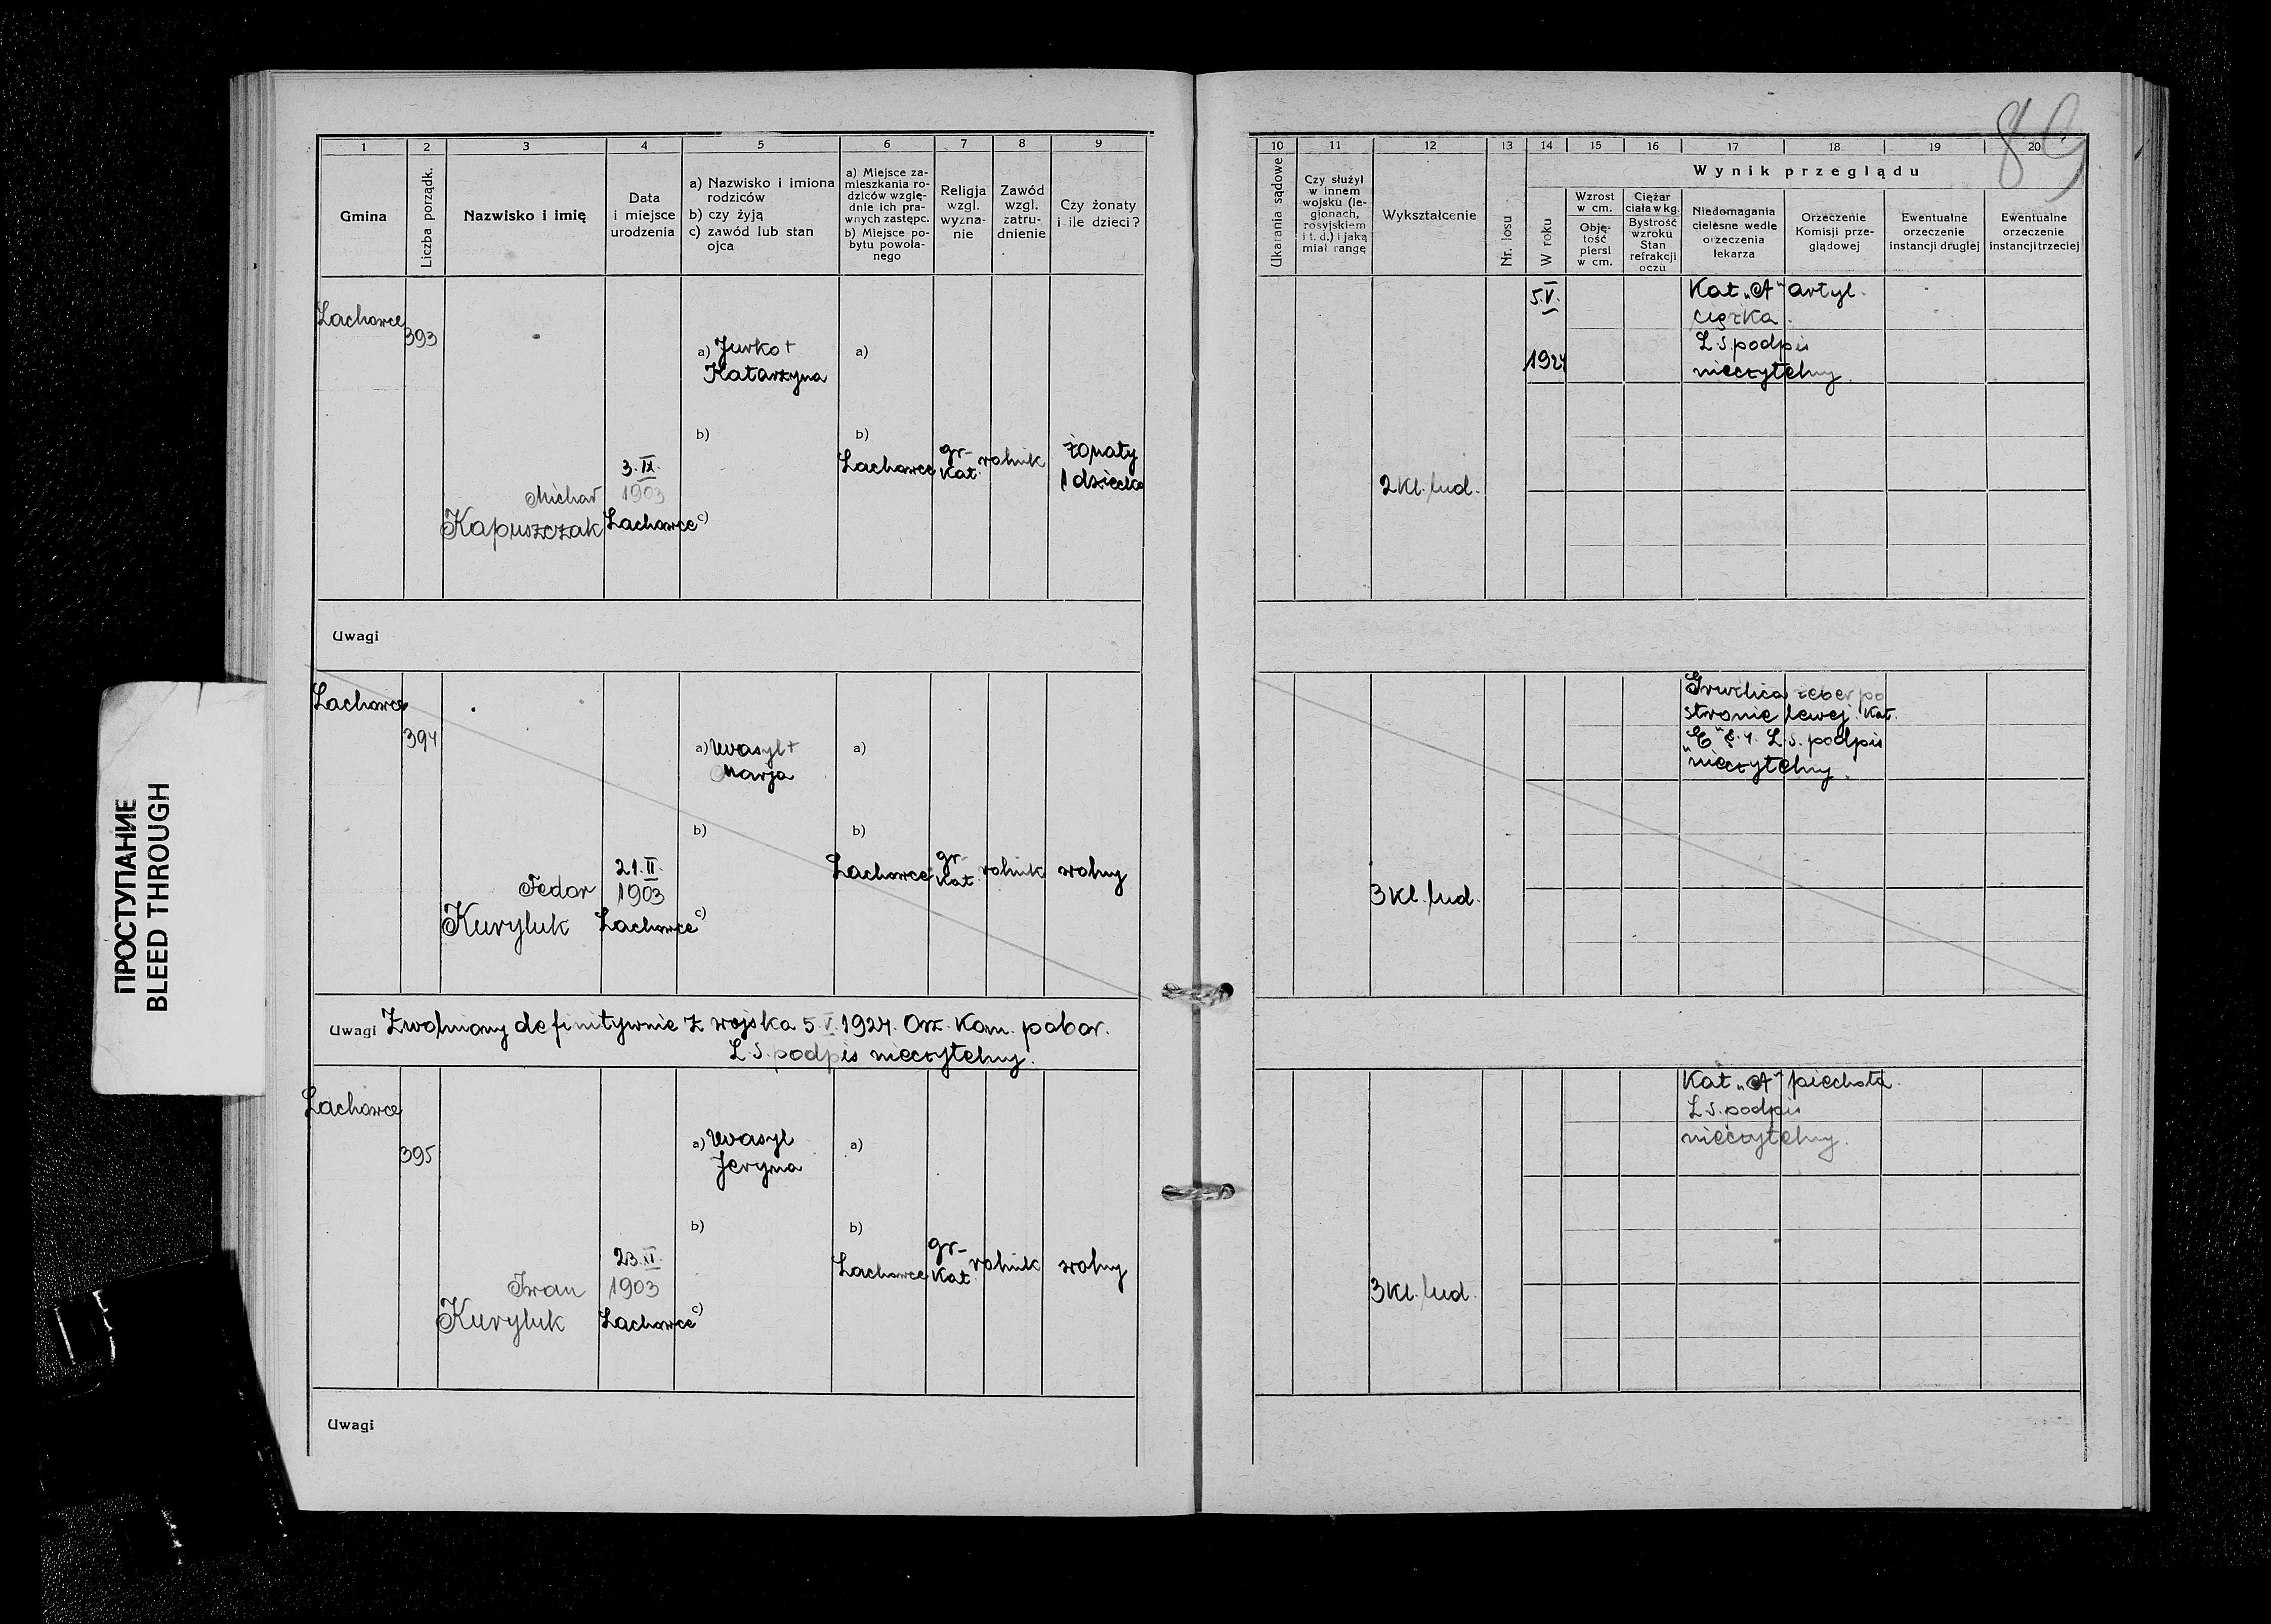 89
1 2 3 4 5 6 7 8 9
Gmina
Liczba porządk.
Nazwisko i imię
Data
i miejsce
urodzenia
a) Nazwisko i imiona
rodziców
b) czy żyją
c) zawód lub stan
ojca
a) Miejsce za-
mieszkania ro-
dziców wzglę-
dnie ich pra-
wnych zastępc.
b) Miejsce po-
bytu powoła-
nego
Religja
wzgl.
wyzna-
nie
Zawód
wzgl.
zatru-
dnienie
Czy żonaty
i ile dzieci?
10 11 12 13 14 15 16 17 18 19 20
Ukarania sądowe
Czy służył
w innem
wojsku (le-
gjonach,
rosyjskiem
i t. d.) i jaką
miał rangę
Wykształcenie
Nr. losu
Wynik przeglądu
W roku
Wzrost
w cm.
Obję-
tość
piersi
w cm.
Ciężar
ciała w kg.
Bystrość
wzroku
Stan
refrakcji
oczu
Niedomagania
cielesne wedle
orzeczenia
lekarza
Orzeczenie
Komisji prze-
glądowej
Ewentualne
orzeczenie
instancji drugiej
Ewentualne
orzeczenie
instancji trzeciej
Lachowce
393
Michał
Kapuszczak
3.IX.
1903
Lachowce
a) Jurko +
Katarzyna
b)
c)
a)
b)
Lachowce
gr-
kat.
rolnik
żonaty
1 dziecko
2 kl. lud.
5.V.
1924
Kat „A” artyl.
ciężka.
L.S. podpis
nieczytelny.
Uwagi
Lachowce
394
Fedor
Kuryluk
21.II.
1903
Lachowce
a) Wasyl +
Marja
b)
c)
a)
b)
Lachowce
gr-
kat.
rolnik
wolny
3 kl. lud.
Gruźlica żeber po
stronie lewej. Kat.
„E” § 4. L.S. podpis
nieczytelny.
Uwagi Zwolniony definitywnie z wojska 5 V 1924. Orz. Kom. pobor.
L.S. podpis nieczytelny.
Lachowce
395
Iwan
Kuryluk
1903
Lachowce
a) Wasyl
Jeryna
b)
c)
a)
b)
Lachowce
gr-
kat.
rolnik
wolny
3 kl. lud.
Kat „A” piechota.
L.S. podpis
nieczytelny.
Uwagi
ПРОСТУПАНИЕ
BLEED THROUGH